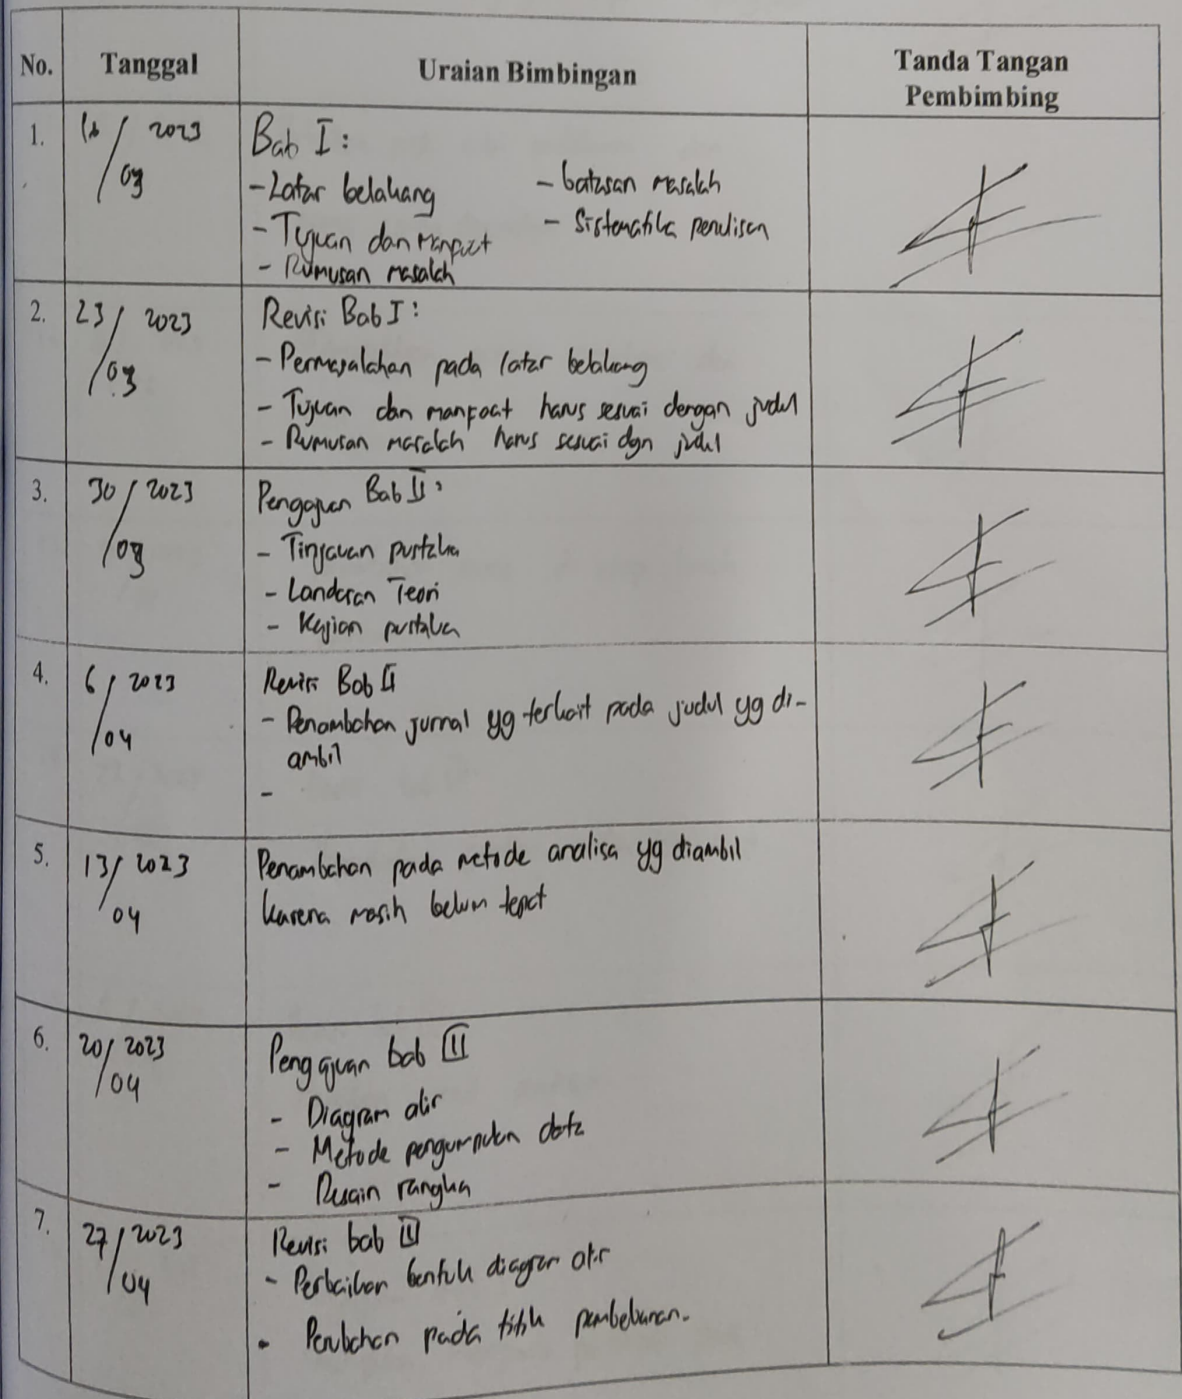 No. Tanggal Uraian Bimbingan Tanda Tangan
Pembimbing
1. 16/03 2023 Bab I:
- Latar belakang - batasan masalah
- Tujuan dan manpaat - Sistematika penulisan
- Rumusan masalah
2. 23/03 2023 Revisi Bab I:
- Permasalahan pada latar belakang
- Tujuan dan manpaat harus sesuai dengan judul
- Rumusan masalah harus sesuai dgn judul
3. 30/03 2023 Pengajuan Bab II:
- Tinjauan pustaka
- Landasan Teori
- Kajian pustaka
4. 6/04 2023 Revisi Bab II
- Penambahan jurnal yg terkait pada judul yg di-
ambil
-
5. 13/04 2023 Penambahan pada metode analisa yg diambil
karena masih belum tepat
6. 20/04 2023 Pengajuan bab III
- Diagram alir
- Metode pengumpulan data
- Desain rangka
7. 27/04 2023 Revisi bab III
- Perbaikan bentuk diagram alir
- Perubahan pada titik pembebanan.